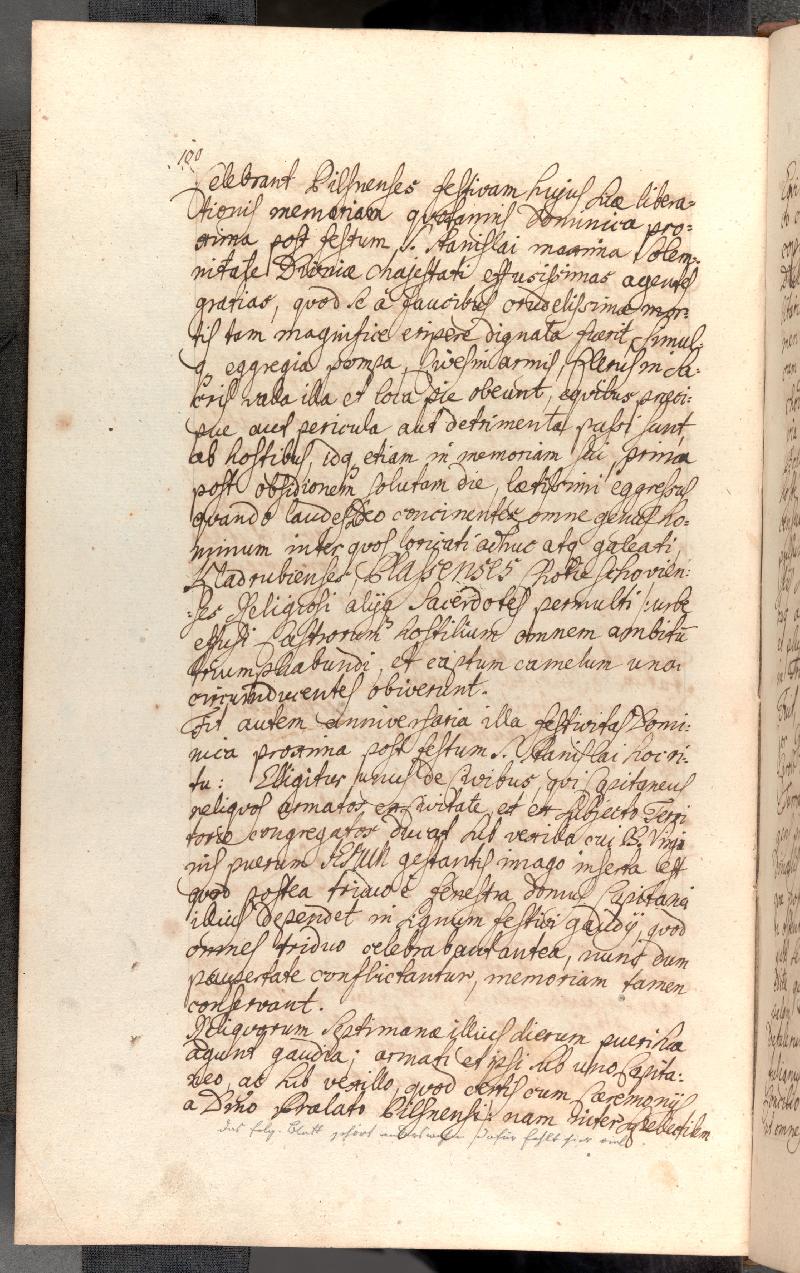 100
Celebrant Pilsnenses festivam hujus suæ libera-
tionis memoriam quotannis Dominica pro-
xima post festum S. Stanislai maxima solem-
nitate Divinæ Majestati effusissimas agentes
gratias, quod se à faucibus crudelissimæ mor-
tis tam magnifice eripere dignata fuerit, simul-
q eggregia pompa, Cives in armis, Clerus in sa-
cris valla illa et loca pie obeunt, equibus præci-
pue aut pericula aut detrimenta passi sunt
ab hostibus, idq etiam in memoriam sui, prima
post obsidionem solutam die, lætissimi eggressus
quando laudes Deo concinentes omne genus ho-
minum inter quos loricati adhuc atq galeati,
Kladrubienses, Plassenses Chotieschovien-
ses Religiosi alijq Sacerdotes permulti /: urbe
effusi Castrorum hostilium omnem ambitū
triumphabundi, et captum camelum una
circumducentes obiverunt.
Fit autem anniversaria illa festivitas Domi-
nica proxima post festum S. Stanislai hoc ri-
tu: Elligitur unus de Civibus, qui Capitaneus
reliquos armatos ex Civitate, et ex subjecto Terri
torio congregatos ducat sub vexillo cui B. Virgi
nis puerum JESUM gestantis imago inserta est
quod postea triduo è fenestra domus Capitanei
illius dependet in signum festivi gaudij, quod
omnes triduo celebrabant antea, nunc dum
paupertate conflictantur, memoriam tamen
conservant.
Reliquorum septimanæ illius dierum pueri sua
agunt gaudia; armati et ipsi sub uno Capita-
neo, ac sub vexillo, quod certis cum Cæremonijs
a Dño Prælato Pilsnensi: nam inter
das folg. Blatt gehört anderswohin dafür fehlt hier viel